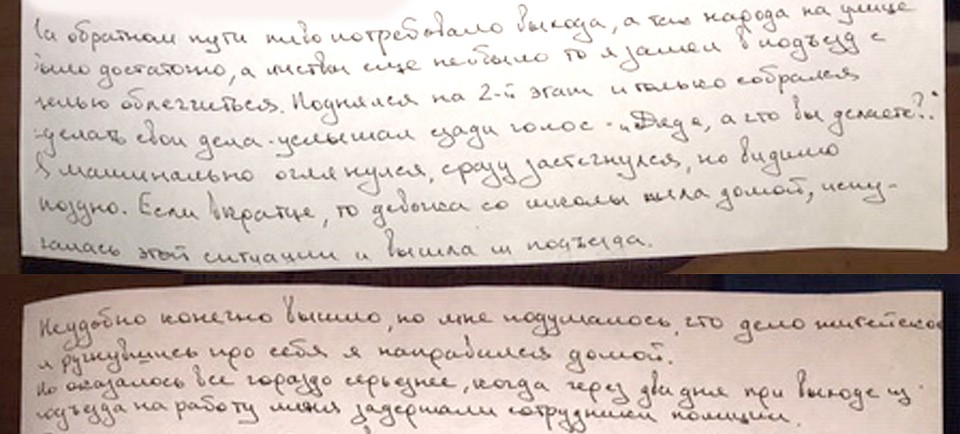 На обратном пути пиво потребовало выхода, а так народа на улице
было достаточно, а листвы еще не было то я зашел в подъезд с
целью облегчиться. Поднялся на 2-й этаж и только собрался
сделать свои дела - услышал сзади голос - "Дядя, а что вы делаете?"
Я машинально оглянулся, сразу застегнулся, но видимо
поздно. Если вкратце, то девочка со школы шла домой, испу-
галась этой ситуации и вышла из подъезда.
Неудобно конечно вышло, но мне подумалось, что дело житейское
и ругнувшись про себя я направился домой.
Но оказалось все гораздо серьезнее, когда через два дня при выходе из
подъезда на работу меня задержали сотрудники полиции.